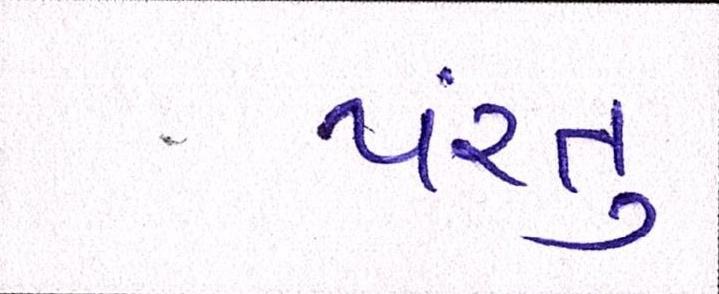 પંરતુ